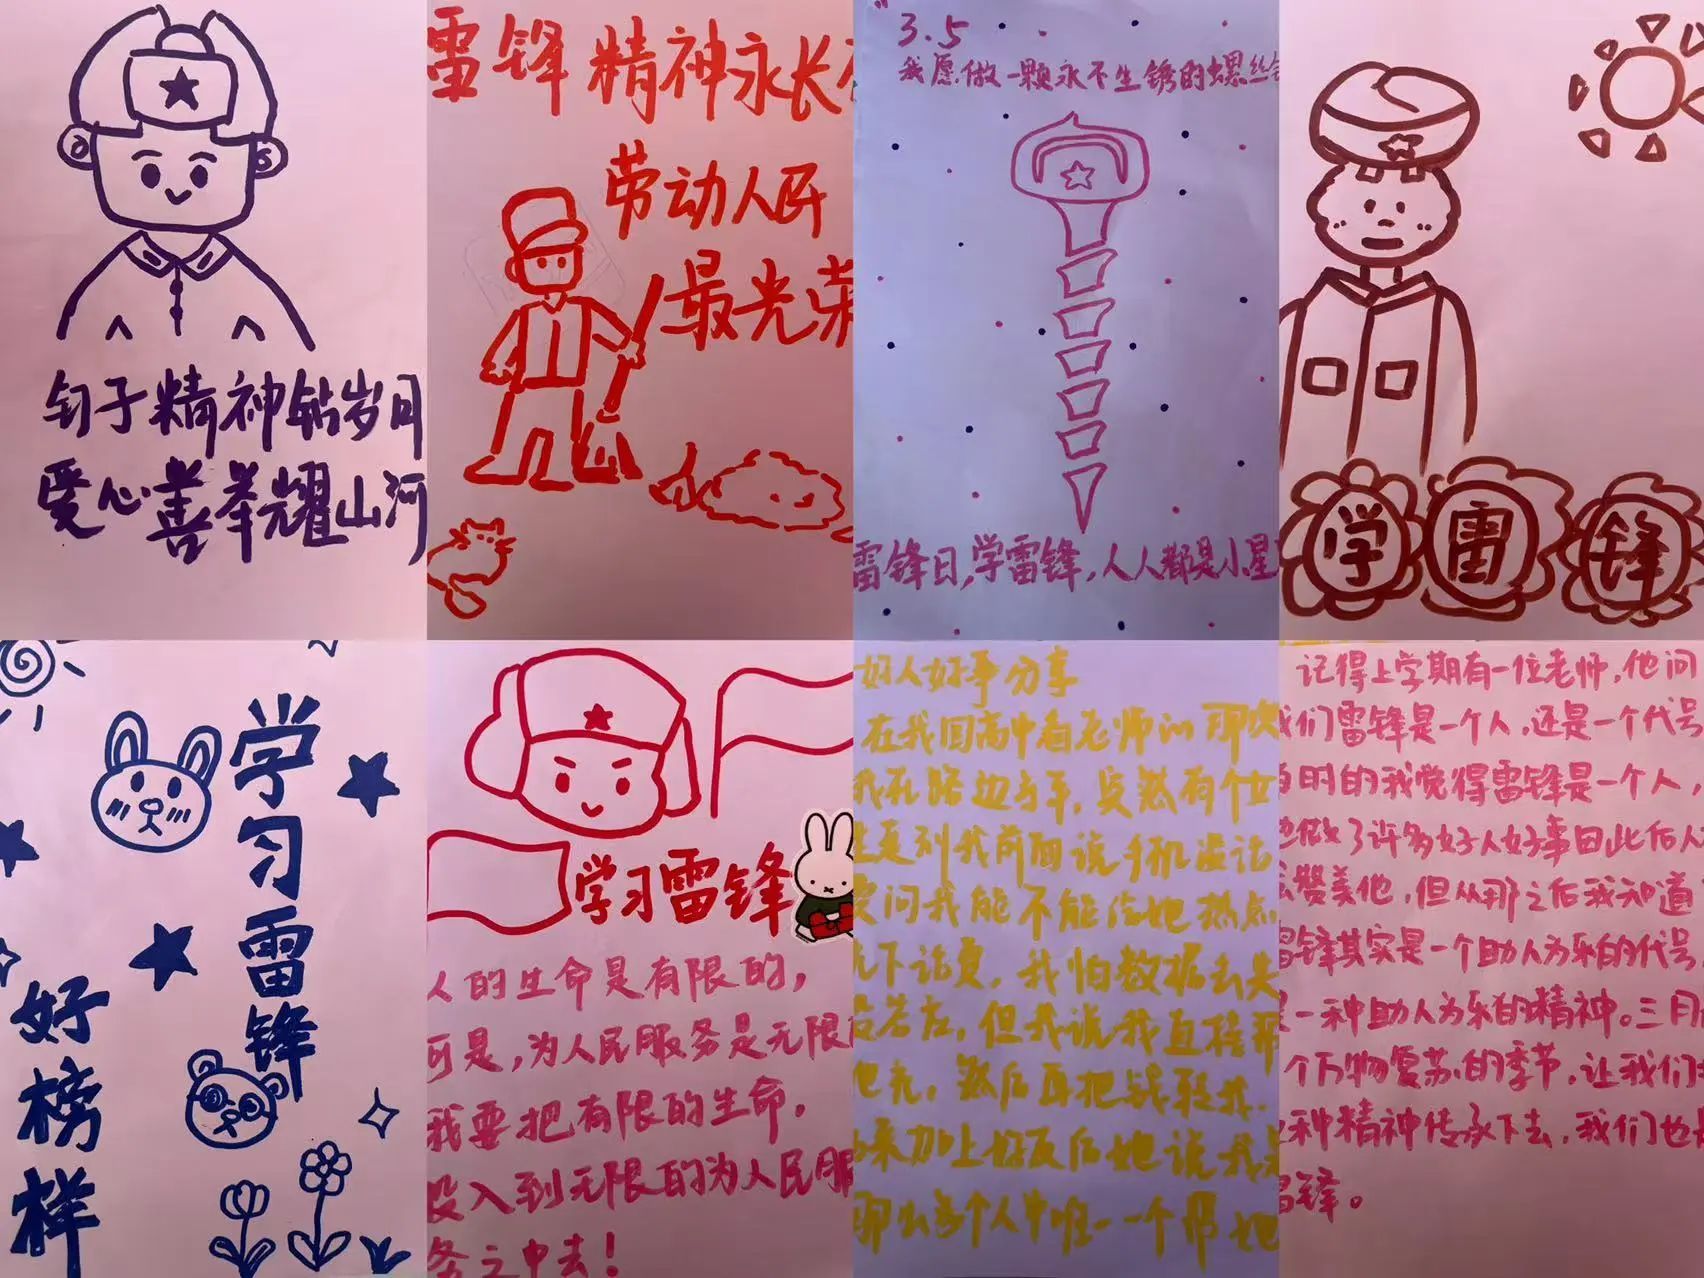 钉子精神钻岁月
爱心善举耀山河
雷锋精神永长
劳动人民
最光荣
3.5
我愿做一颗永不生锈的螺丝
雷锋日,学雷锋,人人都是小星
学雷锋
学习雷锋
好榜样
学习雷锋
人的生命是有限的,
可是,为人民服务是无限
我要把有限的生命,
投入到无限的为人民服
务之中去!
好人好事分享
在我回高中看老师的那次
我在路边等车,突然有个女
生走到我前面说手机没话
费问我能不能给她热点
充下话费,我怕数据丢失
没答应,但我说我直接帮
她充,然后再把钱转我.
加上好友后她说我是
那么多个人中唯一一个帮她
记得上学期有一位老师,他问
我们雷锋是一个人,还是一个代号
当时的我觉得雷锋是一个人,
他做了许多好人好事因此后人
赞美他,但从那之后我知道
雷锋其实是一个助人为乐的代号
是一种助人为乐的精神。三月
个万物复苏的季节,让我们
这种精神传承下去,我们也是
雷锋。